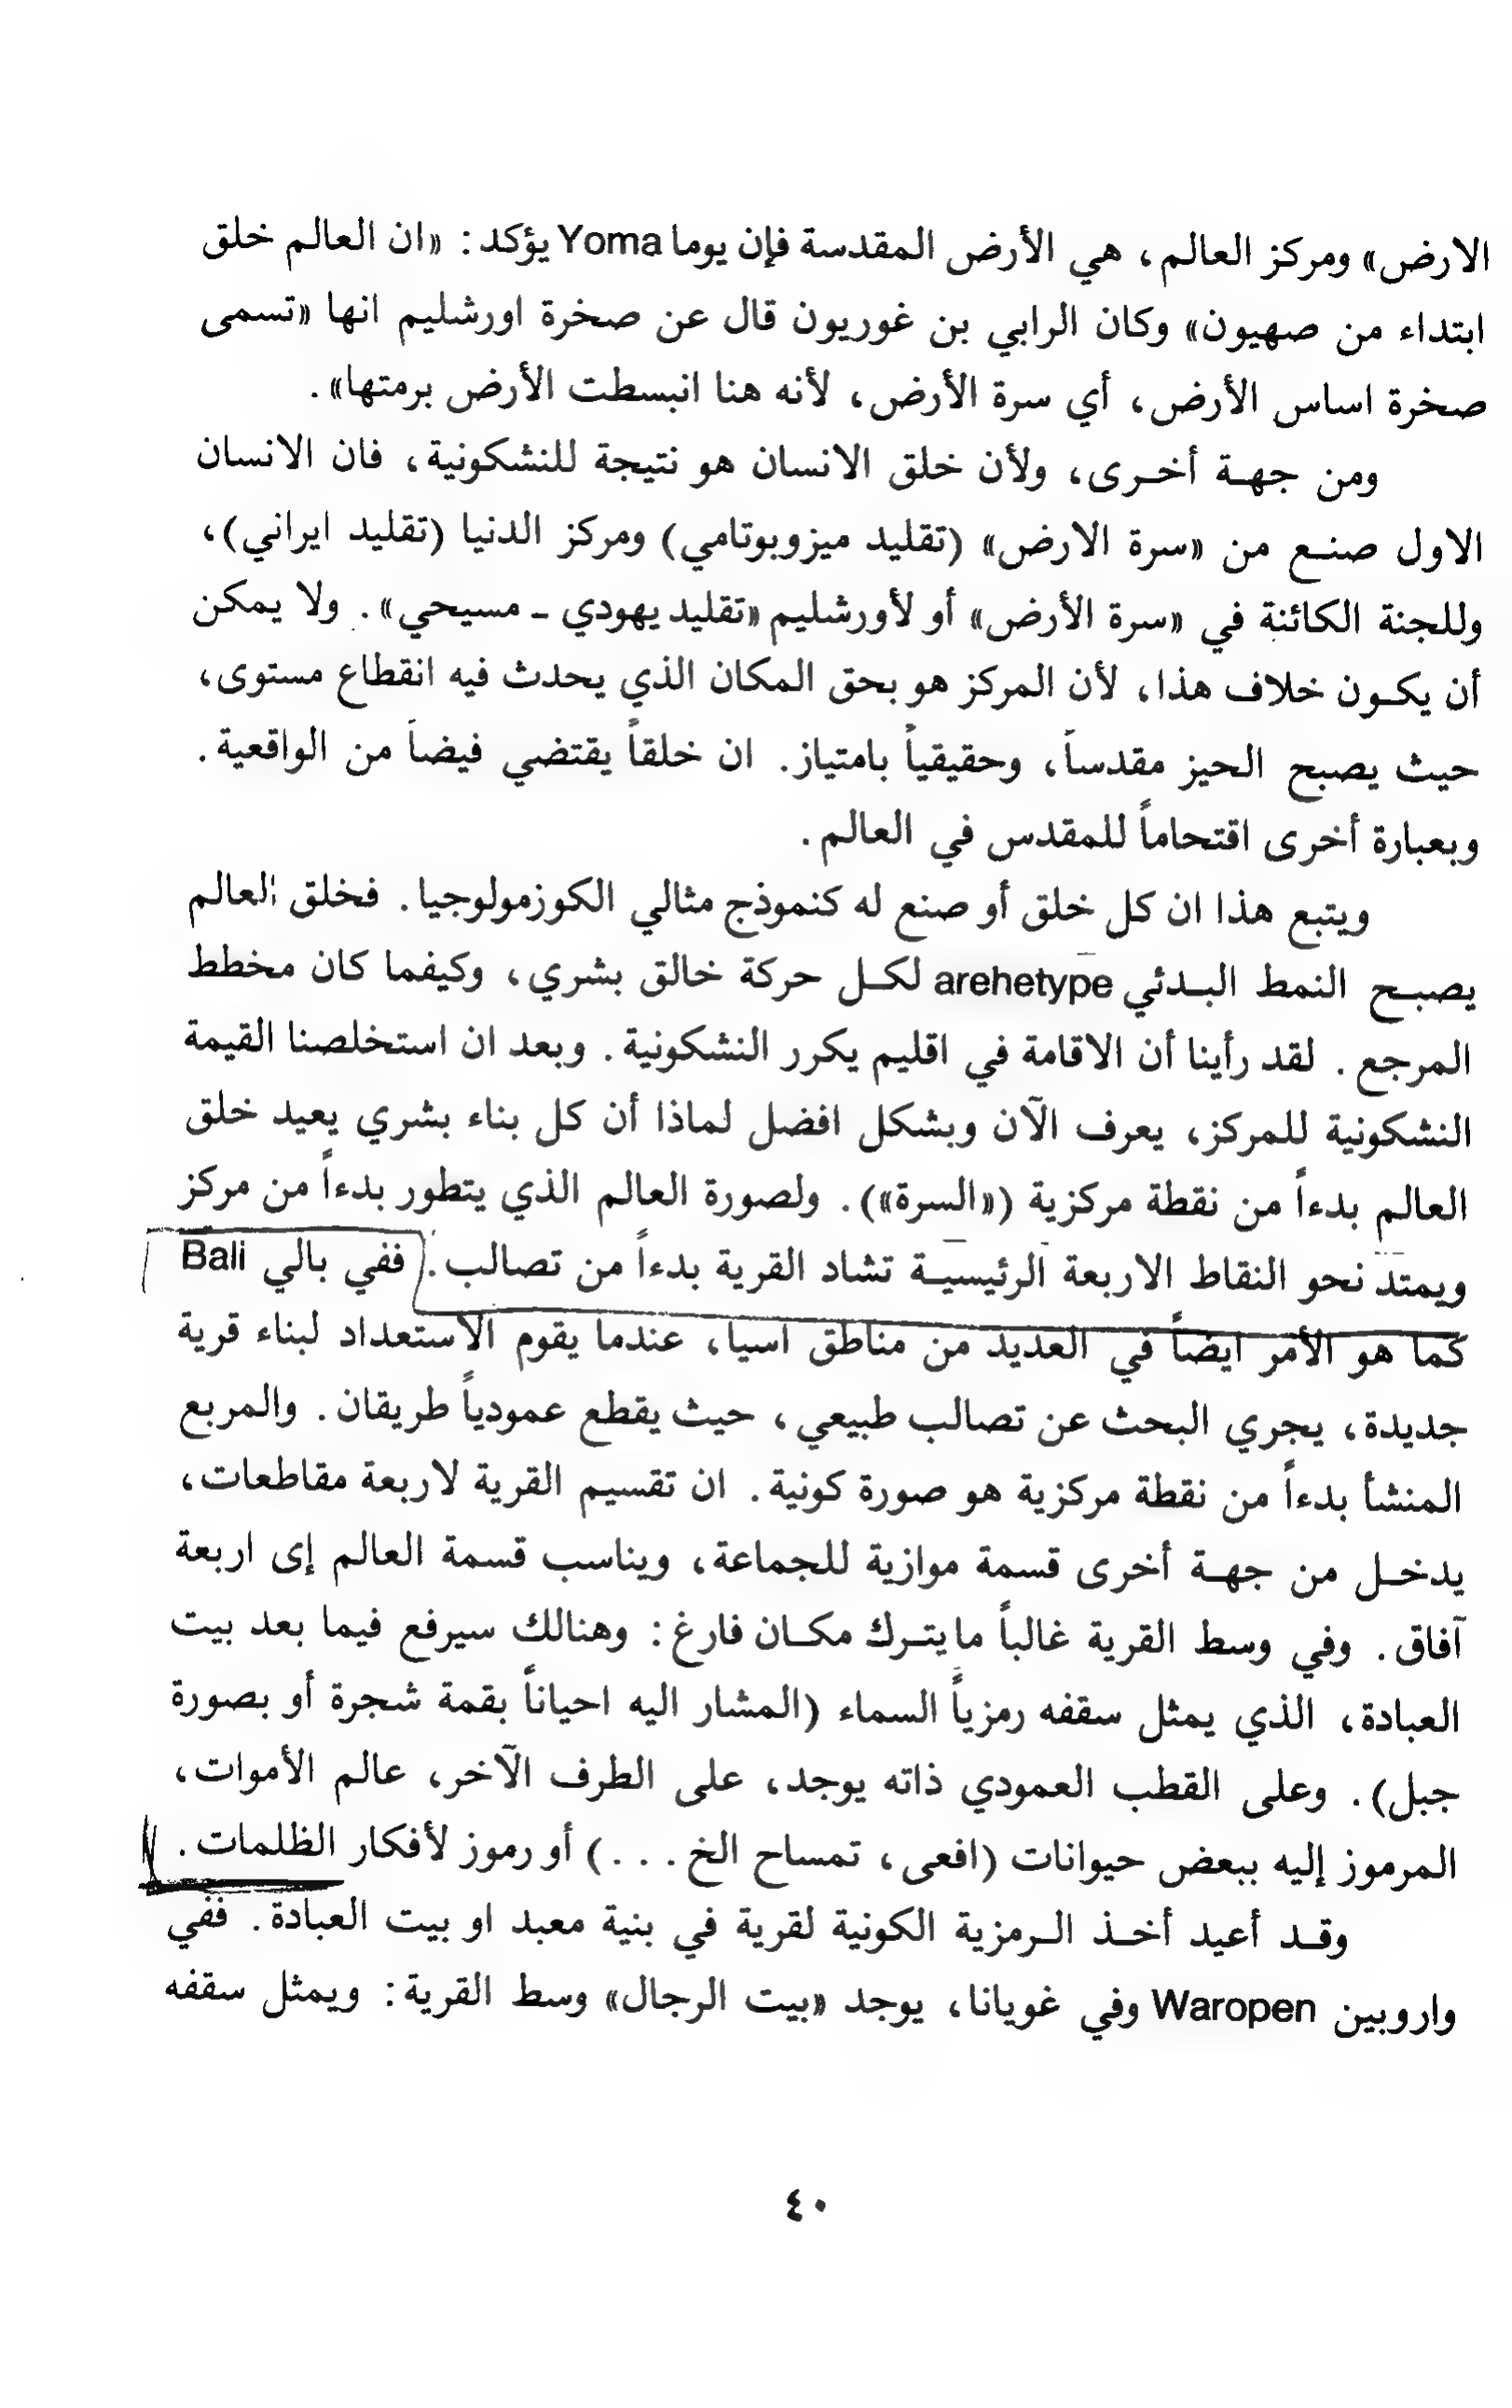 الارض» ومركز العالم، هي الأرض المقدسة فإن يوما Yoma يؤكد: «ان العالم خلق
ابتداء من صهيون» وكان الرابي بن غوريون قال عن صخرة اورشليم انها «تسمى
صخرة اساس الأرض، أي سرة الأرض، لأنه هنا انبسطت الأرض برمتها».
ومن جهة أخرى، ولأن خلق الانسان هو نتيجة للنشكونية، فان الانسان
الاول صنع من «سرة الارض» (تقليد ميزوبوتامي) ومركز الدنيا (تقليد ايراني)،
وللجنة الكائنة في «سرة الأرض» أو لأورشليم «تقليد يهودي ـ مسيحي». ولا يمكن
أن يكون خلاف هذا، لأن المركز هو بحق المكان الذي يحدث فيه انقطاع مستوى،
حيث يصبح الحيز مقدساً، وحقيقياً بامتياز. ان خلقاً يقتضي فيضاً من الواقعية.
وبعبارة أخرى اقتحاماً للمقدس في العالم.
ويتبع هذا ان كل خلق أو صنع له كنموذج مثالي الكوزمولوجيا. فخلق العالم
يصبح النمط البدئي arehetype لكل حركة خالق بشري، وكيفما كان مخطط
المرجع. لقد رأينا أن الاقامة في اقليم يكرر النشكونية. وبعد ان استخلصنا القيمة
النشكونية للمركز، يعرف الآن وبشكل افضل لماذا أن كل بناء بشري يعيد خلق
العالم بدءاً من نقطة مركزية («السرة»). ولصورة العالم الذي يتطور بدءاً من مركز
ويمتد نحو النقاط الاربعة الرئيسية تشاد القرية بدءاً من تصالب. ففي بالي Bali
كما هو الأمر ايضاً في العديد من مناطق اسيا، عندما يقوم الاستعداد لبناء قرية
جديدة، يجري البحث عن تصالب طبيعي، حيث يقطع عمودياً طريقان. والمربع
المنشأ بدءاً من نقطة مركزية هو صورة كونية. ان تقسيم القرية لاربعة مقاطعات،
يدخل من جهة أخرى قسمة موازية للجماعة، ويناسب قسمة العالم إى اربعة
آفاق. وفي وسط القرية غالباً ما يترك مكان فارغ: وهنالك سيرفع فيما بعد بيت
العبادة، الذي يمثل سقفه رمزياً السماء (المشار اليه احياناً بقمة شجرة أو بصورة
جبل). وعلى القطب العمودي ذاته يوجد، على الطرف الآخر، عالم الأموات،
المرموز إليه ببعض حيوانات (افعى، تمساح الخ . . .) أو رموز لأفكار الظلمات.
وقد أعيد أخذ الرمزية الكونية لقرية في بنية معبد او بيت العبادة. ففي
واروبين Waropen وفي غويانا، يوجد «بيت الرجال» وسط القرية: ويمثل سقفه
٤٠